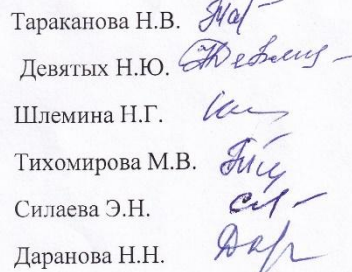 Тараканова Н.В.
Девятых Н.Ю.
Шлемина Н.Г.
Тихомирова М.В.
Силаева Э.Н.
Даранова Н.Н.